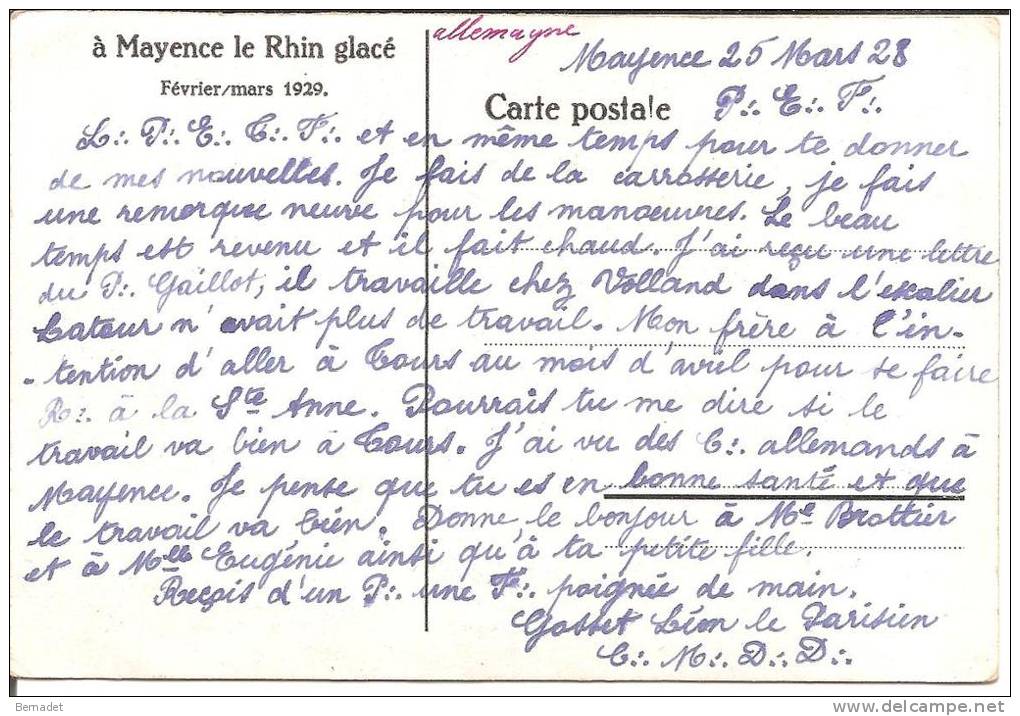 à Mayence le Rhin glacé
Février/mars 1929.
allemagne
Mayence 25 Mars 28
Carte postale
P∴ E∴ F∴
L∴ P∴ E∴ C∴ F∴ et en même temps pour te donner
de mes nouvelles. Je fais de la carrosserie, je fais
une remorque neuve pour les manœuvres. Le beau
temps est revenu et il fait chaud. J'ai reçu une lettre
du P∴ Gaillot, il travaille chez Volland dans l'escalier
Latour n'avait plus de travail. Mon frère à l'in-
-tention d'aller à Tours au mois d'avril pour se faire
R∴ à la Ste Anne. Pourrais tu me dire si le
travail va bien à Tours. J'ai vu des C∴ allemands à
Mayence. Je pense que tu es en bonne santé et que
le travail va bien. Donne le bonjour à Me Brottier
et à Mlle Eugénie ainsi qu'à ta petite fille.
Reçois d'un P∴ une F∴ poignée de main.
Gosset Léon le Parisien
C∴ M∴ D∴ D∴
Bernadet
www.delcampe.net